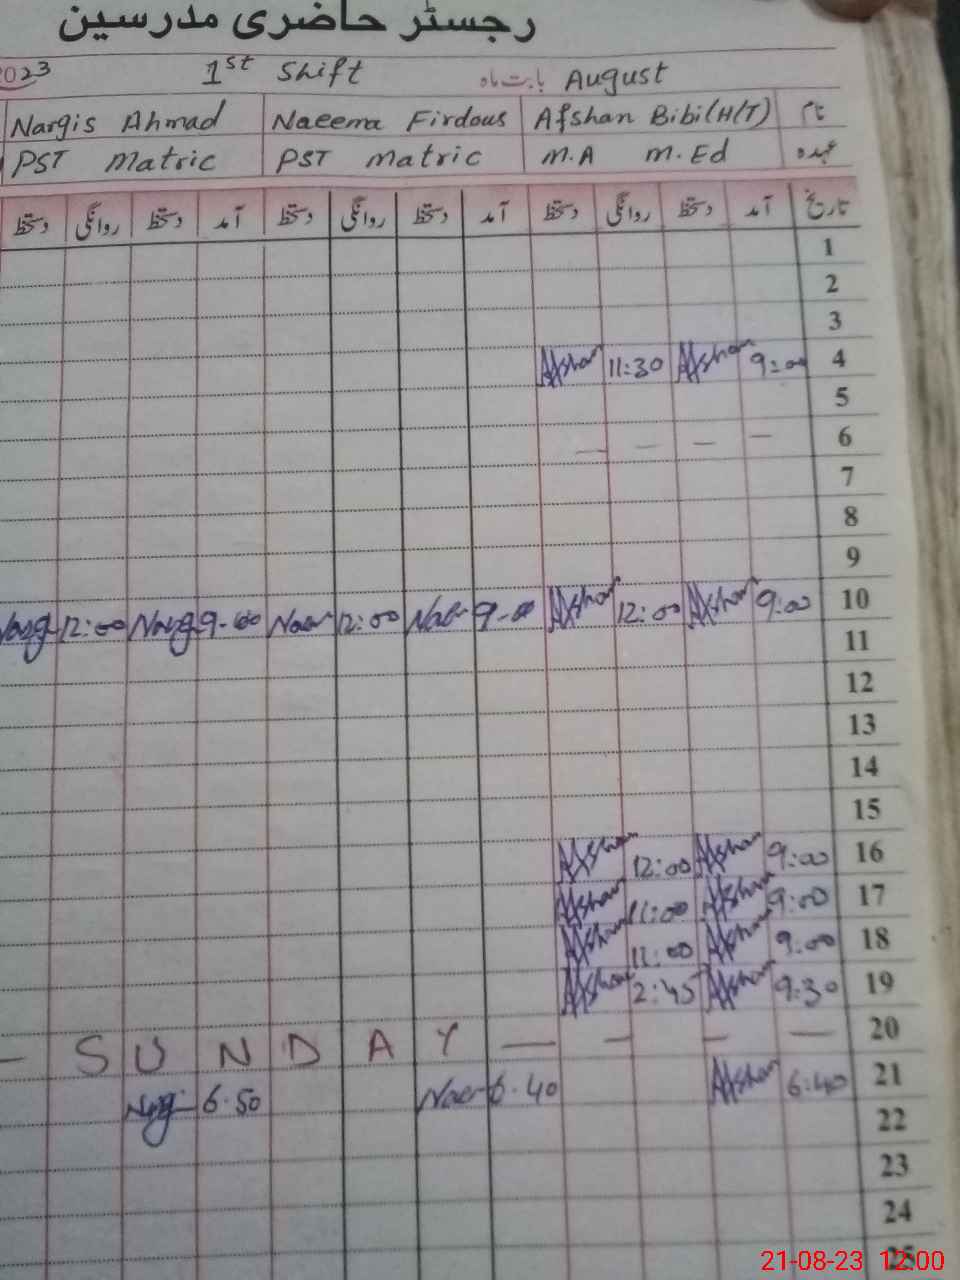 رجسٹر حاضری مدرسین
2023 1st Shift بابت ماہ August
Nargis Ahmad Naeema Firdous Afshan Bibi(H/T) نام
PST Matric PST matric M.A M.Ed عہدہ
دستخط روانگی دستخط آمد دستخط روانگی دستخط آمد دستخط روانگی دستخط آمد تاریخ
1
2
3
Afshan 11:30 Afshan 9:00 4
5
— — — — 6
7
8
9
Narg 12:00 Narg 9-00 Naee 12:00 Naee 9-00 Afshan 12:00 Afshan 9:00 10
11
12
13
14
15
Afshan 12:00 Afshan 9:00 16
Afshan 11:00 Afshan 9:00 17
Afshan 11:00 Afshan 9:00 18
Afshan 2:45 Afshan 9:30 19
— S U N D A Y — — — — 20
6.50 Naee 6.40 Afshan 6:40 21
22
23
24
25
21-08-23 12:00